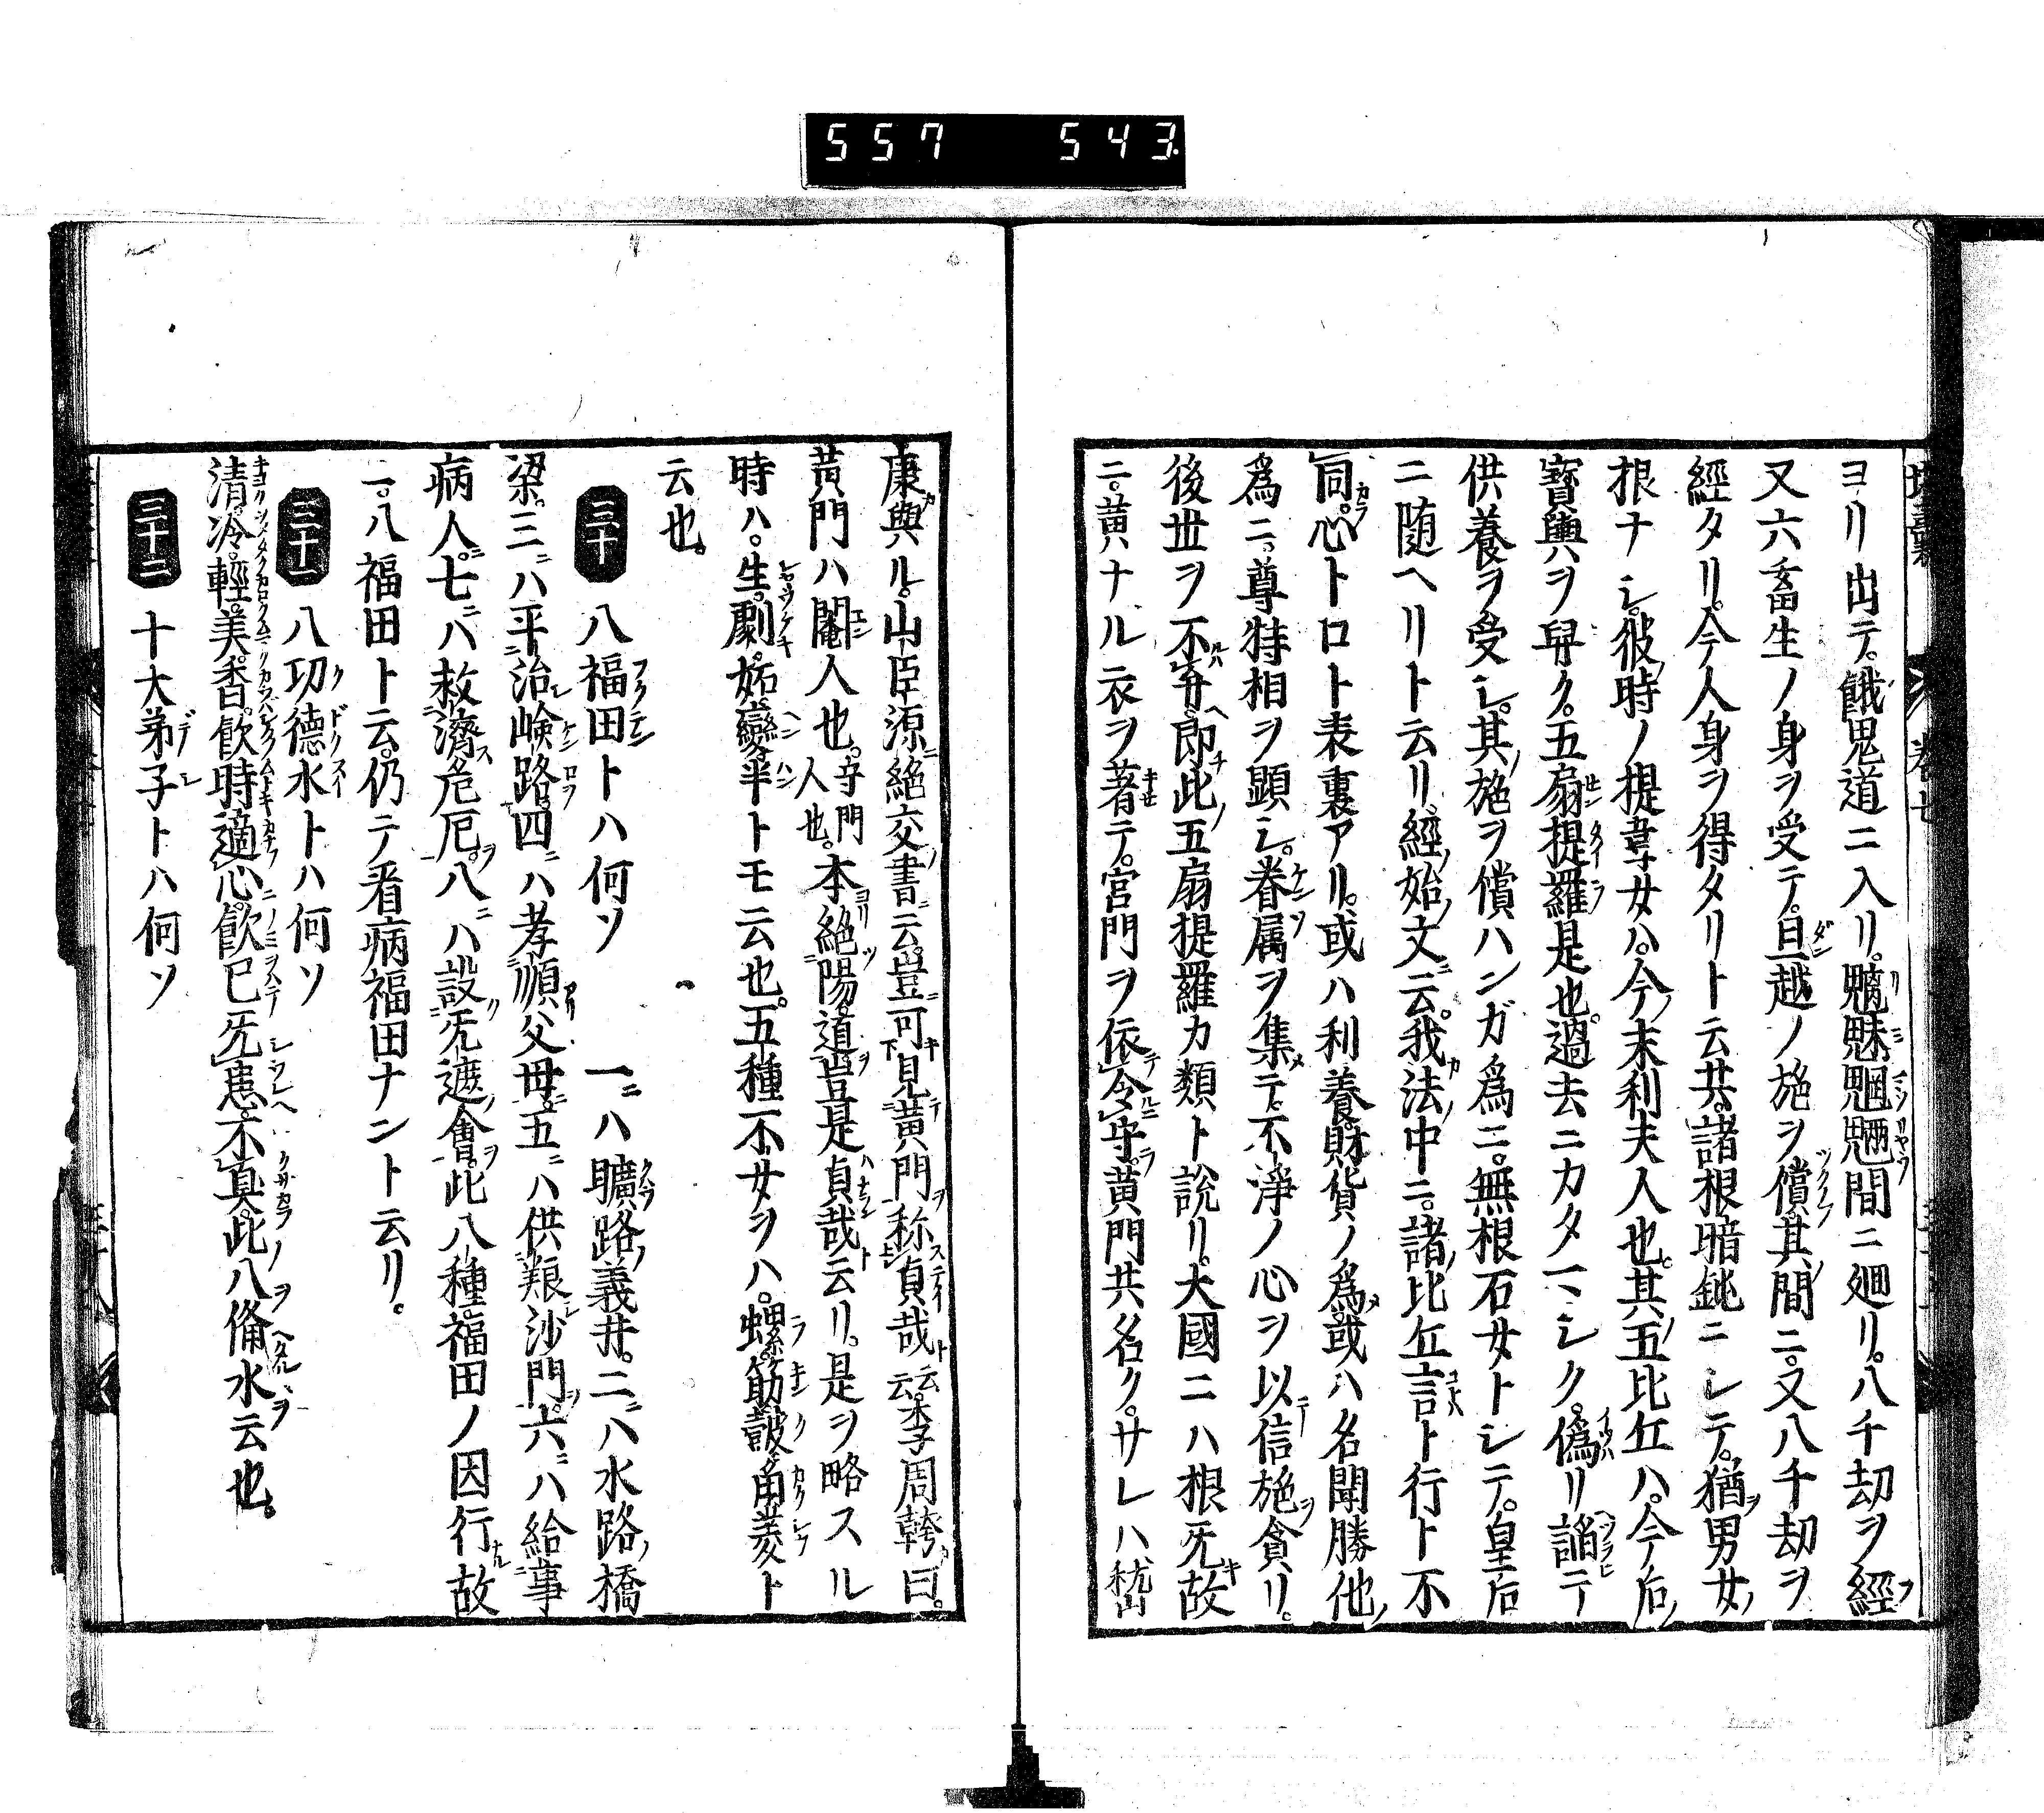 557 543
ヨリ出テ。餓鬼道ニ入リ。魑魅魍魎間ニ廻リ。八千劫ヲ經
又六畜生ノ身ヲ受テ。旦越ノ施ヲ償。其間ニ。又八千劫ヲ
經タリ。今人身ヲ得タリト云共。諸根暗鈍ニシテ。猶男女
根ナシ。彼時ノ提韋女ハ。今末利夫人也。其五比丘ハ。今后
寶輿ヲ舁ク。五扇提羅是也。過去ニカタマシク。偽リ謟テ
供養ヲ受シ。其施ヲ償ハンガ爲ニ。無根石女トシテ。皇后
ニ随ヘリト云リ。經始文云。我法中ニ。諸比丘言ト行ト不
同。心ト口ト表裏アリ。或ハ利養財貨ノ爲。或ハ名聞勝他
爲ニ。尊特相ヲ顯シ。眷属ヲ集テ。不淨ノ心ヲ以信施貪リ。
後丗ヲ不弁。即此五扇提羅カ類ト説リ。大國ニハ根旡故
ニ。黄ハナル衣ヲ著テ。宮門ヲ依令守。黄門共名ク。サレハ嵇山
康與ル。山臣源絶交書云。豈可見黄門称貞哉云云。李周翰曰。
黄門ハ閹人也。守門人也。本絶陽。道豈是貞哉云リ。是ヲ略スル
時ハ。生。劇。妬。變。半トモ云也。五種不女ヲハ。螺。筋。皷。角。菱ト
云也。
三十 八福田トハ何ソ 一ハ曠路義井。二ハ水路橋
梁。三ハ平治嶮路。四ハ孝順父母。五ハ供艱沙門。六ハ給事
病人。七ハ救濟危厄。八ハ設旡遮會。此八種福田ノ因行故
一。八福田ト云。仍テ看病福田ナント云リ。
三十一 八功德水トハ何ソ
清。冷。輕。美。香。飮時適心。飮已旡患。不臭。此八備水云也。
三十二 十大弟子トハ何ソ